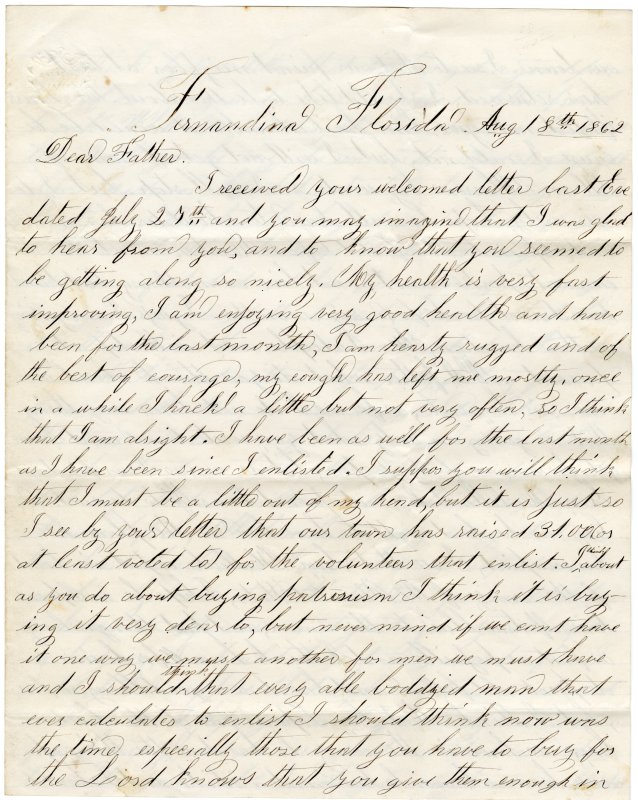 Fernandina Florida. Aug 18th 1862
Dear Father.
I received your welcomed letter last Eve
dated July 27th and you may imagine that I was glad
to hear from you, and to know that you seemed to
be getting along so nicely. My health is very fast
improving, I am enjoying very good health and have
been for the last month, I am hearty rugged and of
the best of courage, my cough has left me mostly, once
in a while I hack a little but not very often, so I think
that I am alright. I have been as well for the last month
as I have been since I enlisted. I suppos you will think
that I must be a little out of my head, but it is just so
I see by your letter that our town has raised
at least voted to, for the volunteers that enlist. I think about
as you do about buying patriosism I think it is buy-
ing it very dear to, but never mind if we cant have
it one way we must another for men we must have
and I should think that every able boddyed man that
ever calculates to enlist I should think now was
the time, especially those that you have to buy for
the Lord knows that you give them enough in